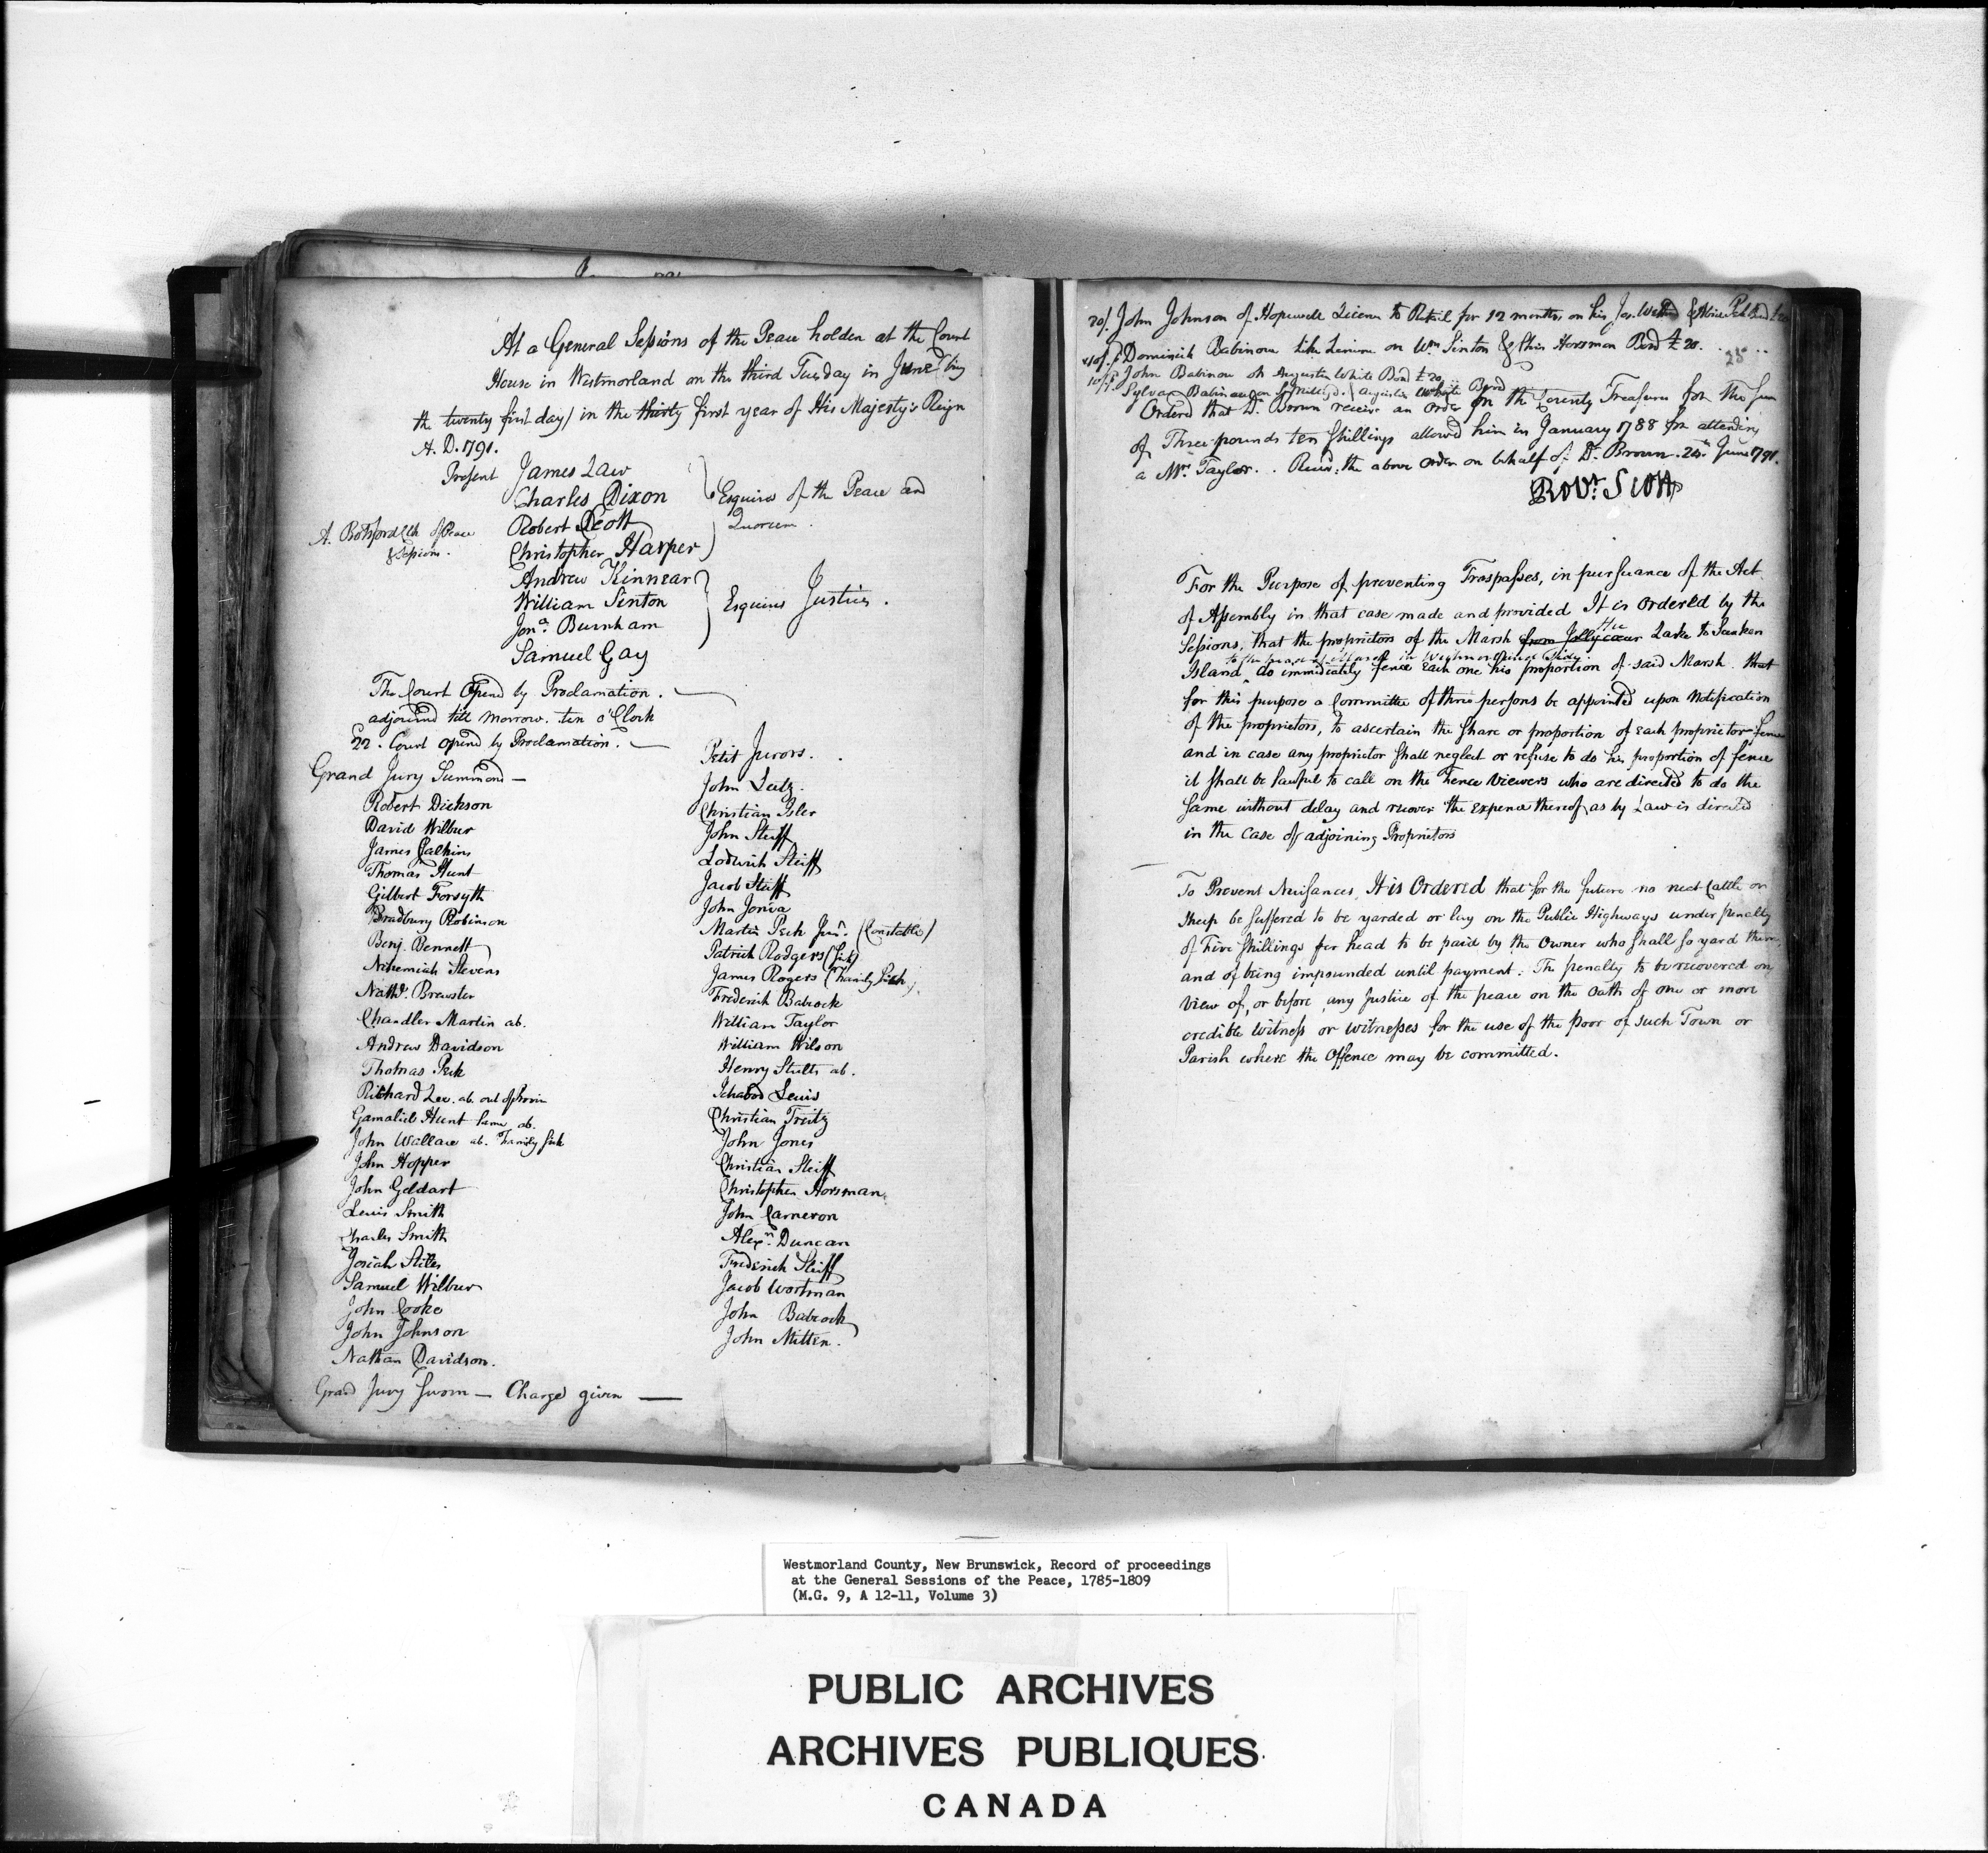 At a General Sessions of the Peace holden at the Court
House in Westmorland on the third Tuesday in June (being
the twenty first day) in the thirty first year of His Majesty's Reign
A. D. 1791.
Present James Law
Charles Dixon
Robert Scott
Christopher Harper
Esquires of the Peace and
Quorum.
A. Botsford Clk of Peace
& Sessions.
Andrew Kinnear
William Sinton
Jona. Burnham
Samuel Gay
Esquires Justices.
The Court Opend by Proclamation.
adjournd till morrow. ten o'Clock
22. Court opend by Proclamation.
Grand Jury Summond —
Robert Dickson
David Wilbur
James Calkins
Thomas Hunt
Gilbert Forsyth
Bradbury Robinson
Benj. Bennett
Nehemiah Stevens
Nathl. Brewster
Chandler Martin ab.
Andrew Davidson
Thomas Peck
Richard Lee. ab. out of Provin
Gamaliel Hunt lame ab.
John Wallace ab. Family sick
John Hopper
John Geldart
Lewis Smith
Charles Smith
Josiah Stiles
Samuel Wilbur
John Cooke
John Johnson
Nathan Davidson.
Grand Jury Sworn — Charge given —
Petit Jurors.
John Lutz.
Christian Isler
John Steiff
Lodwick Steiff
Jacob Steiff
John Jones
Martin Peck Junr. (Constable)
Patrick Rodgers (Sick)
James Rogers (Family Sick)
Frederick Babcock
William Taylor
William Wilson
Henry Stults ab.
Ichabod Lewis
Christian Treitz
John Jones
Christian Steiff
Christopher Horsman.
John Cameron
Alexr. Duncan
Frederick Steiff
Jacob Wortman
John Babcock
John Mitten.
20/. John Johnson of Hopewell Licence to Retail for 12 months on his Jas. &
10/. Dominick Babinou like Licence on Wm Sinton & Chrs Horsman Bond £20.
25
10/. John Babinou on Augustin White Bond £20
Sylvan Babinou on Augustin White Bond
Ordered that Dr. Brown receive an Order on the County Treasurer for the Sum
of Three pounds ten Shillings allowed him in January 1788 for attending
a Mrs Taylor. . Recd. the above order on behalf of Dr. Brown. 24th June 1791.
Robt. Scott
For the Purpose of preventing Trespasses, in pursuance of the Act
of Assembly in that case made and provided It is Ordered by the
Sessions, that the proprietors of the Marsh from Jollycœur the Lake to Sunken
Island, do immediately fence Each one his proportion of said Marsh that
for this purpose a Committee of three persons be appointed upon Notification
of the proprietors, to ascertain the Share or proportion of Each proprietor fence
and in case any proprietor Shall neglect or refuse to do his proportion of fence
it Shall be lawful to call on the Fence Viewers who are directed to do the
Same without delay and recover the Expence thereof, as by Law is directed
in the Case of adjoining Proprietors
To Prevent Nuisances, It is Ordered that for the future no neat Cattle or
Sheep be Suffered to be yarded or lay on the Public Highways under penalty
of Five Shillings per head to be paid by the Owner who Shall So yard them,
and of being impounded until payment: The penalty to be recovered on
View of, or before any Justice of the peace on the Oath of one or more
credible Witness or witnesses for the use of the poor of such Town or
Parish where the Offence may be committed.
Westmorland County, New Brunswick, Record of proceedings
at the General Sessions of the Peace, 1785-1809
(M.G. 9, A 12-11, Volume 3)
PUBLIC ARCHIVES
ARCHIVES PUBLIQUES
CANADA